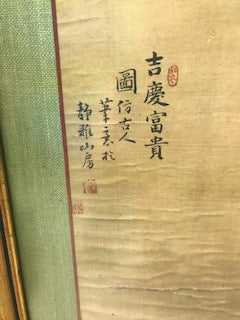 吉慶富貴
圖仿古人
筆意於
靜雅山房